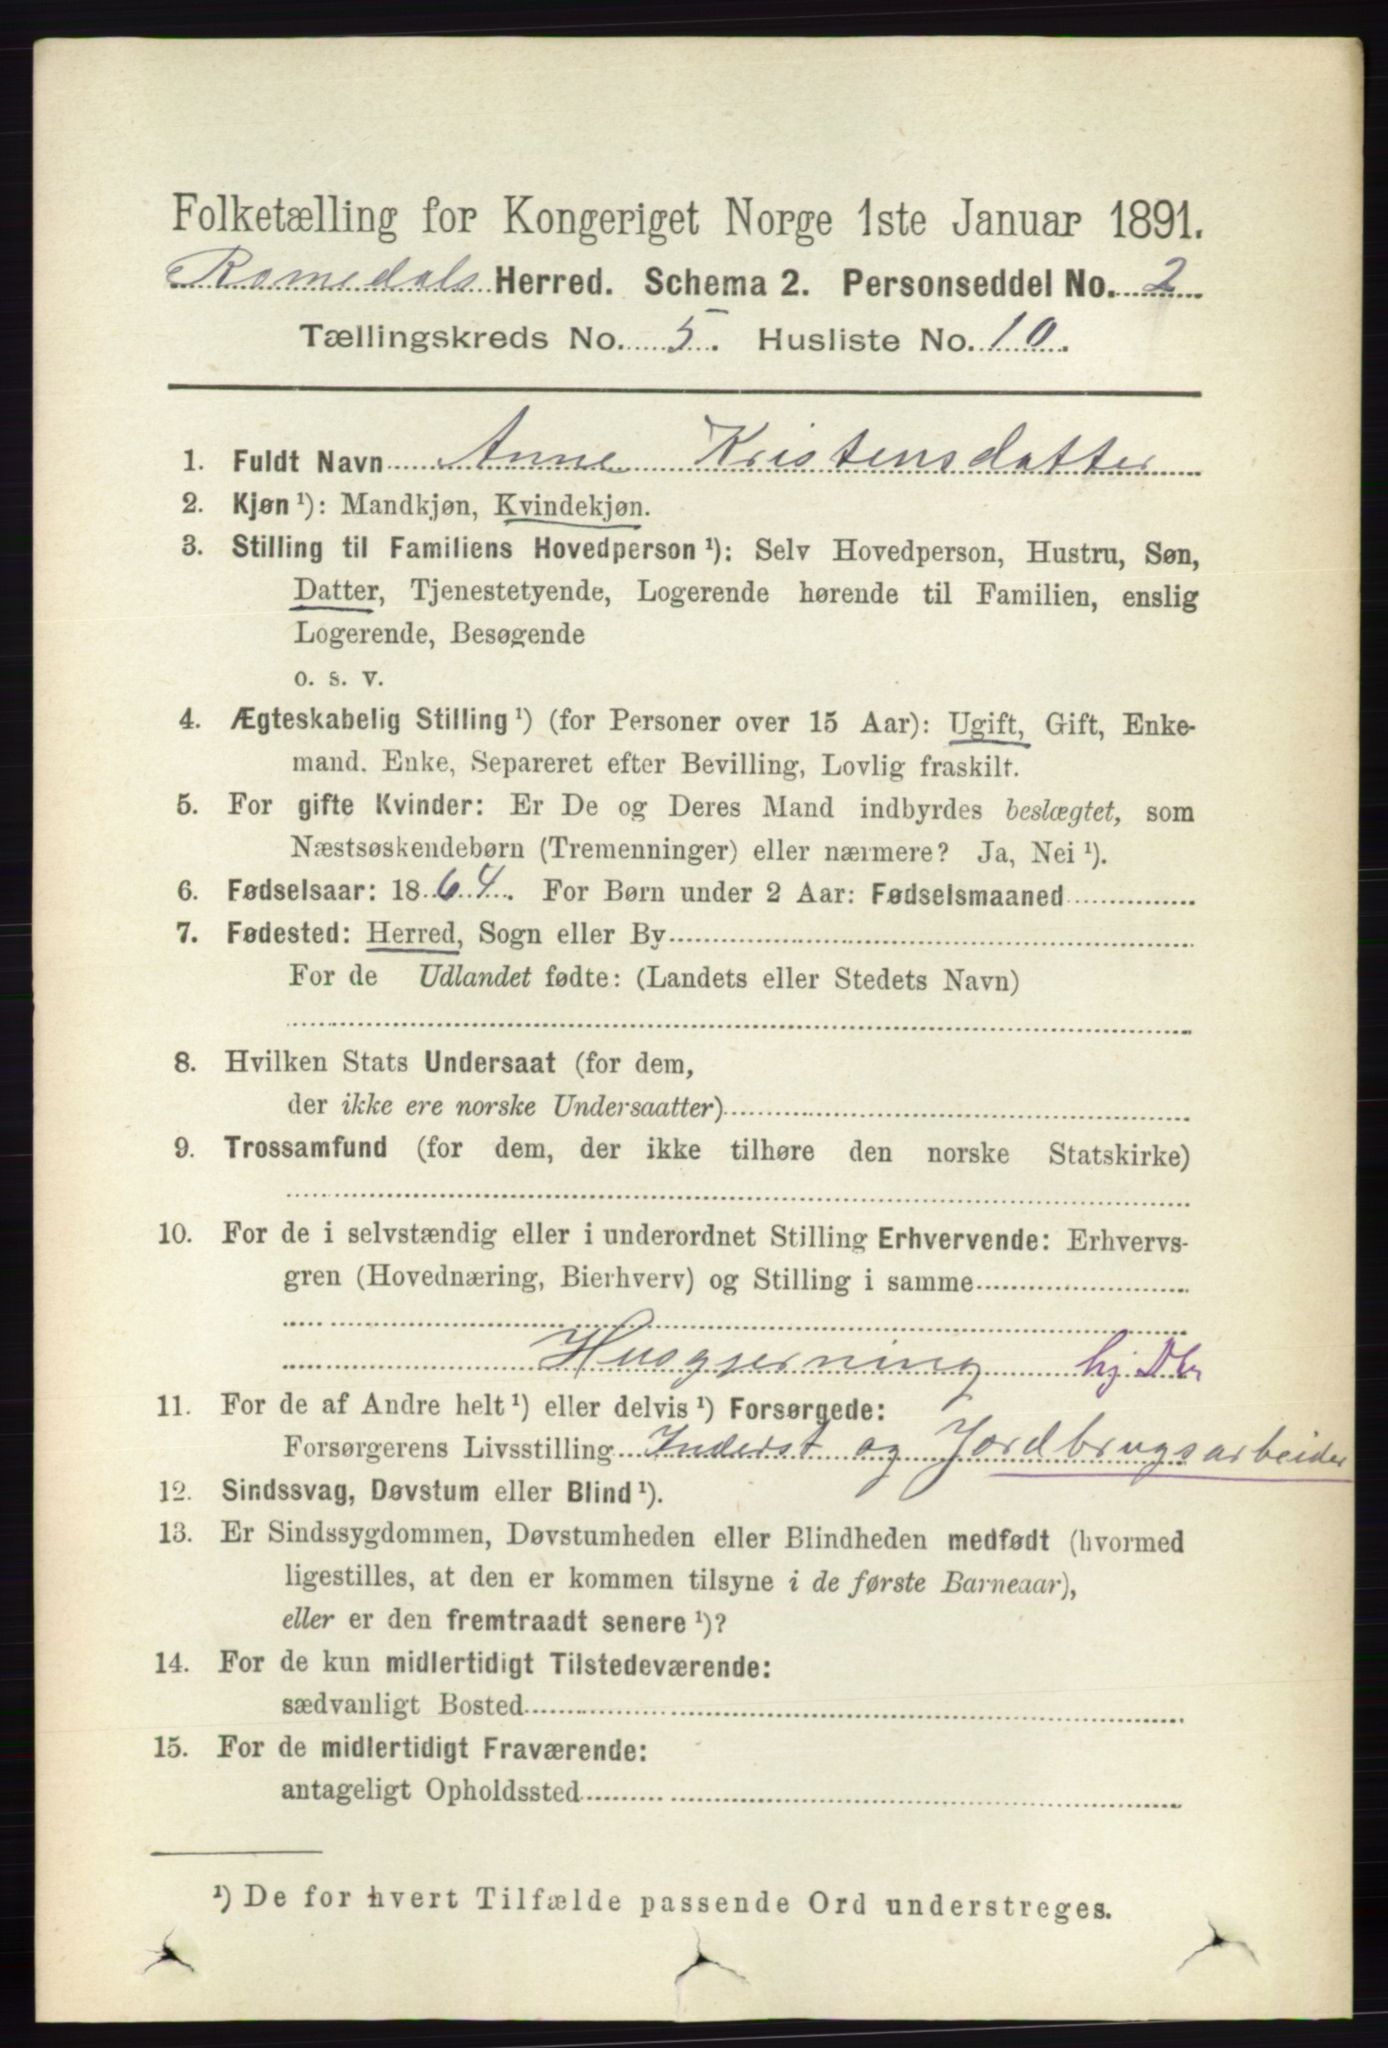 Folketælling for Kongeriget Norge 1ste Januar 1891.
Romedals Herred. Schema 2. Personseddel No. 2
Tællingskreds No. 5. Husliste No. 10.
1. Fuldt Navn Anne Kristensdatter
2. Kjøn ¹): Mandkjøn, Kvindekjøn.
3. Stilling til Familiens Hovedperson ¹): Selv Hovedperson, Hustru, Søn,
Datter, Tjenestetyende, Logerende hørende til Familien, enslig
Logerende, Besøgende
o. s. v.
4. Ægteskabelig Stilling ¹) (for Personer over 15 Aar): Ugift, Gift, Enke-
mand. Enke, Separeret efter Bevilling, Lovlig fraskilt.
5. For gifte Kvinder: Er De og Deres Mand indbyrdes beslægtet, som
Næstsøskendebørn (Tremenninger) eller nærmere? Ja, Nei ¹).
6. Fødselsaar: 1864. For Børn under 2 Aar: Fødselsmaaned
7. Fødested: Herred, Sogn eller By
For de Udlandet fødte: (Landets eller Stedets Navn)
8. Hvilken Stats Undersaat (for dem,
der ikke ere norske Undersaatter)
9. Trossamfund (for dem, der ikke tilhøre den norske Statskirke)
10. For de i selvstændig eller i underordnet Stilling Erhvervende: Erhvervs-
gren (Hovednæring, Bierhverv) og Stilling i samme
Husgjerning hj. Dtr
11. For de af Andre helt ¹) eller delvis ¹) Forsørgede:
Forsørgerens Livsstilling Inderst og Jordbrugsarbeider
12. Sindssvag, Døvstum eller Blind ¹).
13. Er Sindssygdommen, Døvstumheden eller Blindheden medfødt (hvormed
ligestilles, at den er kommen tilsyne i de første Barneaar),
eller er den fremtraadt senere ¹)?
14. For de kun midlertidigt Tilstedeværende:
sædvanligt Bosted
15. For de midlertidigt Fraværende:
antageligt Opholdssted
¹) De for hvert Tilfælde passende Ord understreges.